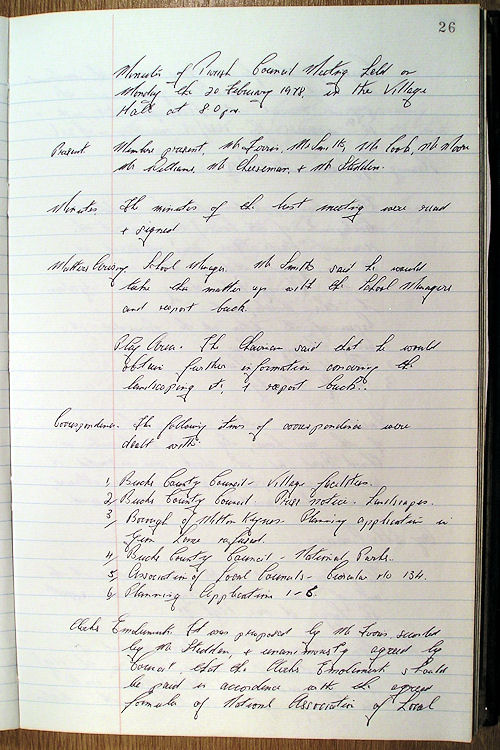 26
Minutes of Parish Council Meeting held on
Monday the 20 February 1978, in the Village
Hall at 8.0pm.
Present Members present, Mr Farris, Mr Smith, Mr Cook, Mr Moore
Mr Williams, Mr Cheeseman, + Mr Stedden.
Minutes The minutes of the last meeting were read
+ signed
Matters Arising School Manager. Mr Smith said he would
take the matter up with the School Managers
and report back.
Play Area. The Chairman said that he would
obtain further information concering the
landscaping of it, + report back.
Correspondence. The following items of correspondence were
dealt with.
1, Bucks County Council - Village facilities.
2, Bucks County Council. Press notice. Landscapes.
3, Borough of Milton Keynes. Planning application in
Lane refused.
4, Bucks County Council - National Parks.
5, Association of Local Councils - Circular No 134.
6, Planning Application 1-6
Clerks Emoluments. It was proposed by Mr Farris, seconded
by Mr Stedden, + unanimously agreed by
Council, that the Clerks Emoluments should
be paid in accordence with the agreed
formula of National Association of Local